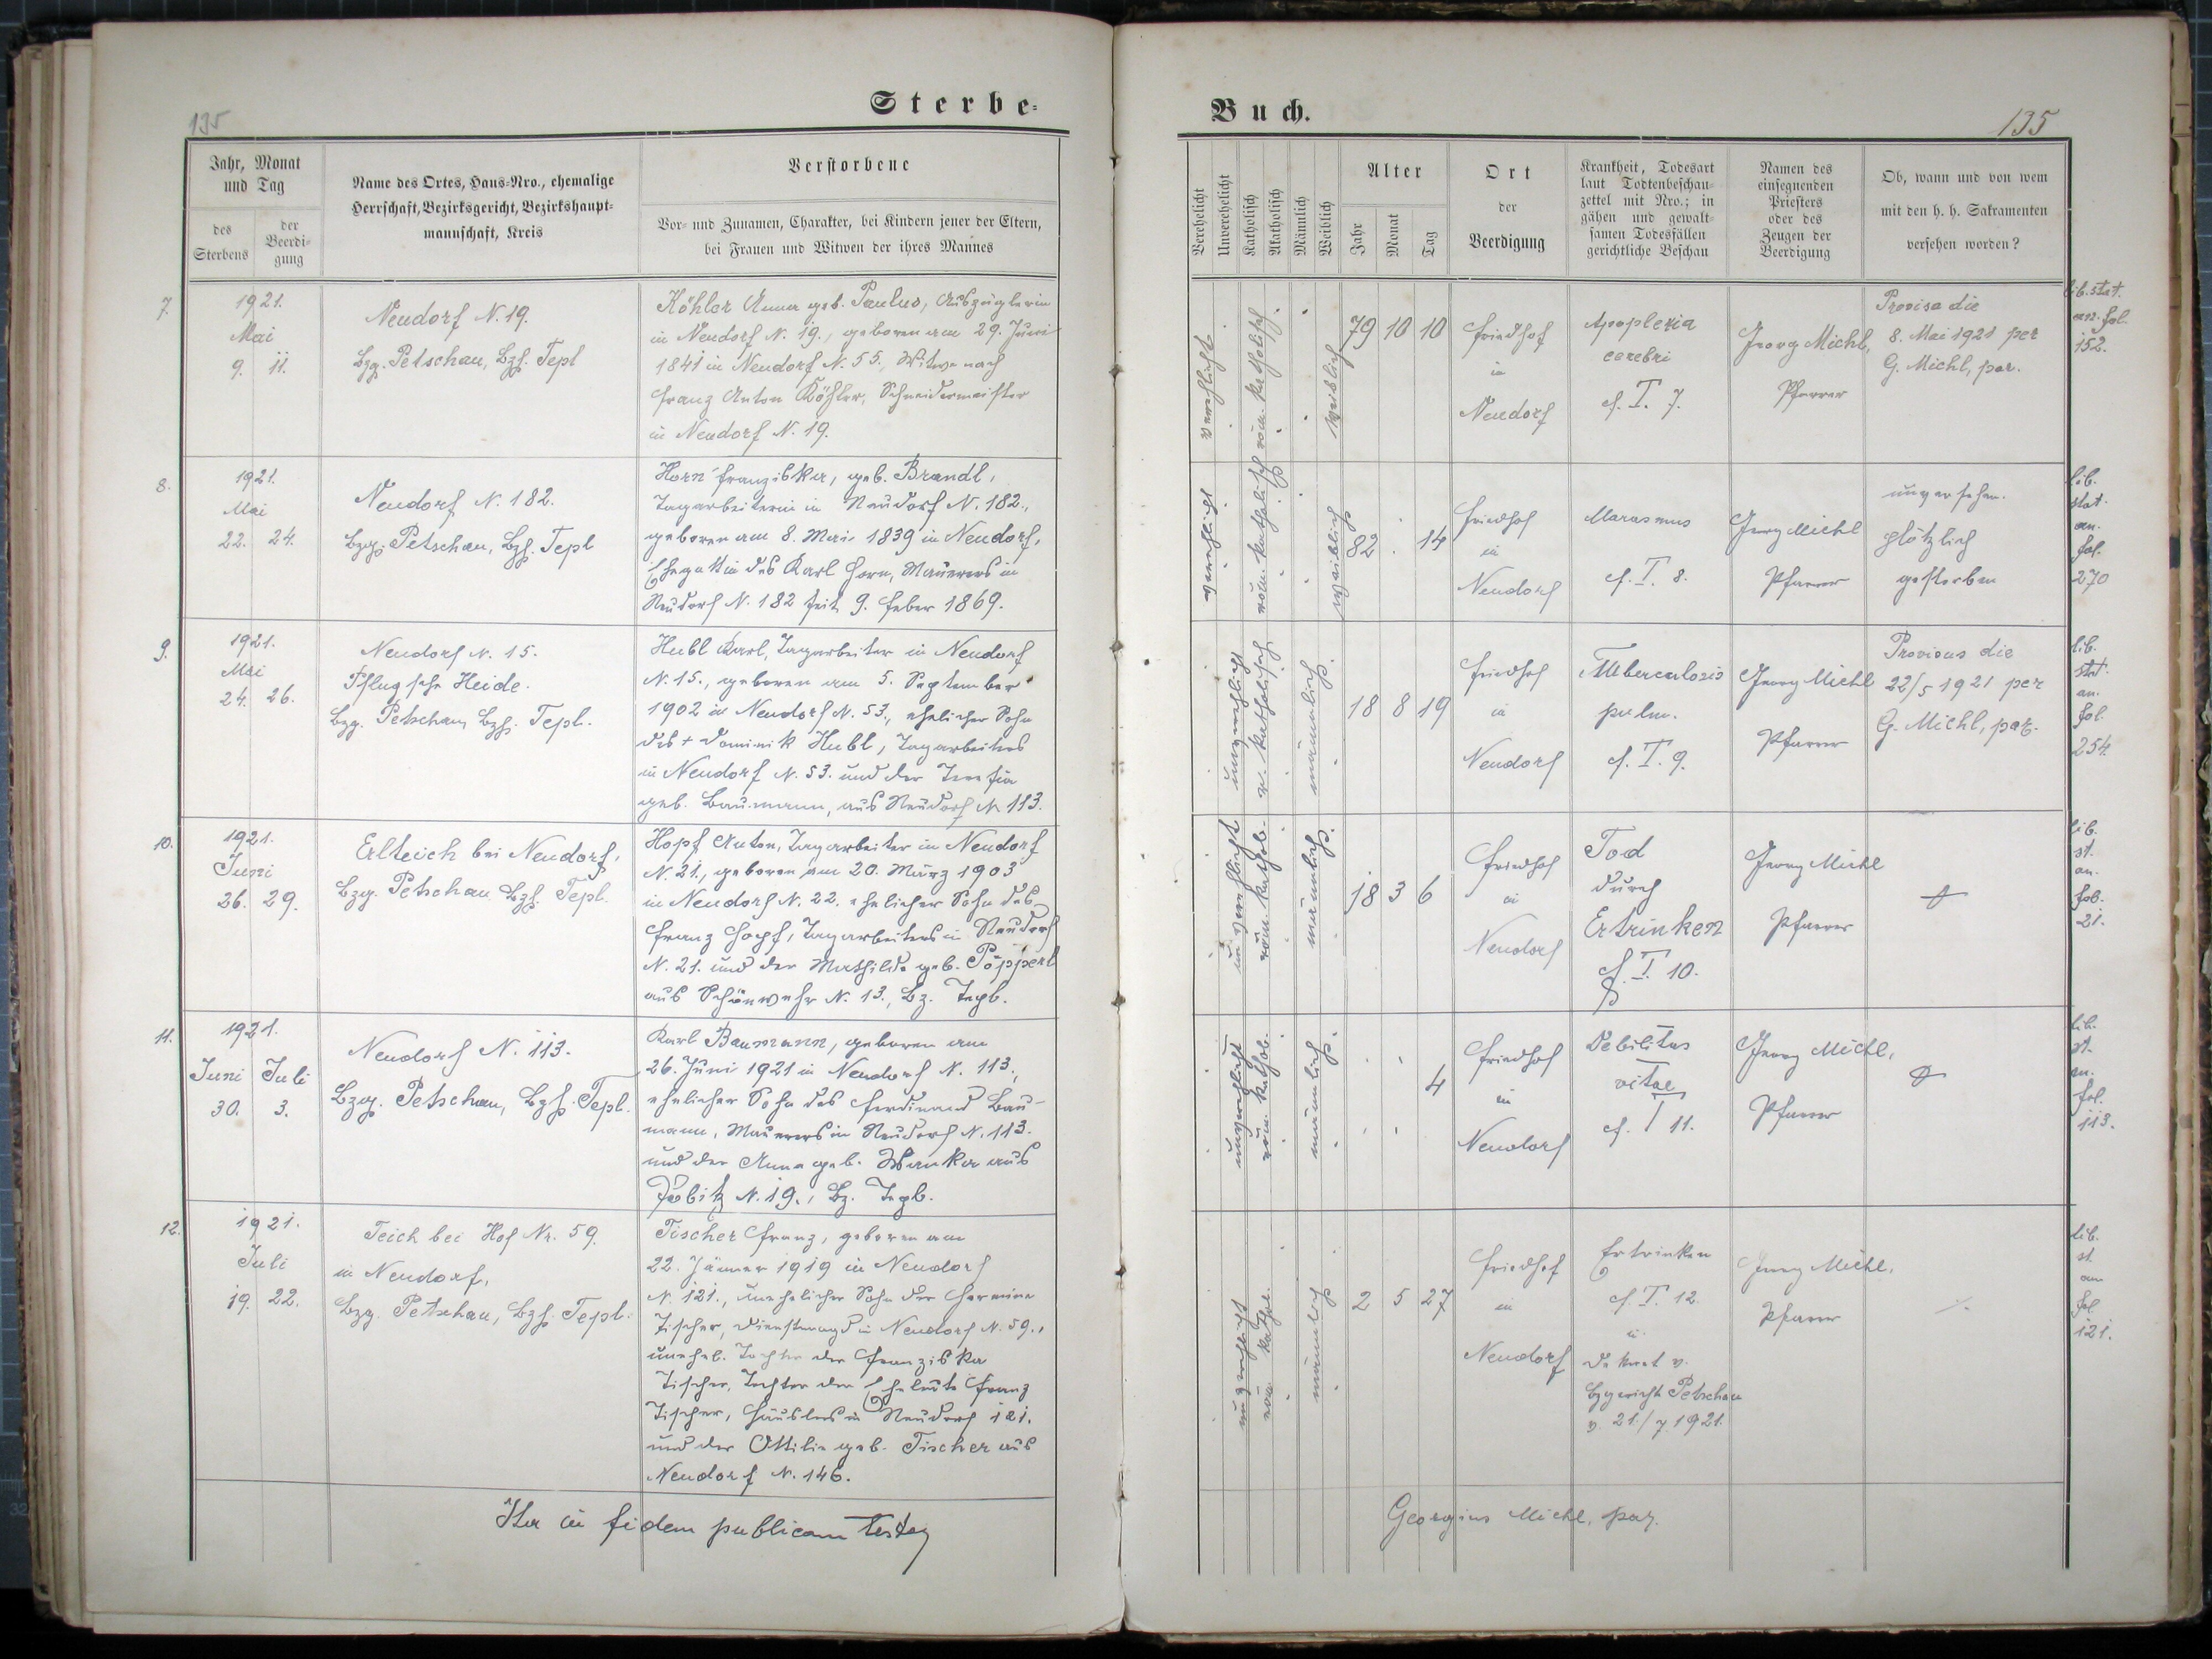 135
Sterbe-
Jahr, Monat
und Tag
des
Sterbens
der
Beerdi-
gung
Name des Ortes, Haus-Nro., ehemalige
Herrschaft, Bezirksgericht, Bezirkshaupt-
mannschaft, Kreis
Verstorbene
Vor- und Zunamen, Charakter, bei Kindern jener der Eltern,
bei Frauen und Witwen der ihres Mannes
7.
1921.
Mai
9. 11.
Neudorf N. 19.
Bzg. Petschau, Bzh. Tepl
Köhler Anna geb. Paulus, Auszüglerin
in Neudorf N. 19., geboren am 29. Juni
1841 in Neudorf N. 55., Witwe nach
Franz Anton Köhler, Schneidermeister
in Neudorf N. 19.
8.
1921.
Mai
22. 24.
Neudorf N. 182.
Bzg. Petschau, Bzh. Tepl
Horn Franziska, geb. Brandl,
Tagarbeiterin in Neudorf N. 182.,
geboren am 8. Mai 1839 in Neudorf,
Ehegattin des Karl Horn, Maurers in
Neudorf N. 182 seit 9. Feber 1869.
9.
1921.
Mai
24. 26.
Neudorf N. 15.
Heide.
Bzg. Petschau, Bzh. Tepl.
Hubl Karl, Tagarbeiter in Neudorf
N. 15., geboren am 5. September
1902 in Neudorf N. 53., ehelicher Sohn
des + Dominik Hubl, Tagarbeiters
in Neudorf N. 53. und der Theresia
geb. Baumann, aus Neudorf N 113.
10.
1921.
Juni
26. 29.
Erlteich bei Neudorf,
Bzg. Petschau Bzh. Tepl.
Hopf Anton, Tagarbeiter in Neudorf
N. 21., geboren am 20. März 1903
in Neudorf N. 22. ehelicher Sohn des
Franz Hopf, Tagarbeiters in Neudorf
N. 21. und der Mathilde geb. Pöpperl
aus Schönwehr N. 13., Bz. Tepl.
11.
1921.
Juni Juli
30. 3.
Neudorf N. 113.
Bzg. Petschau, Bzh. Tepl.
Karl Baumann, geboren am
26. Juni 1921 in Neudorf N. 113.,
ehelicher Sohn des Ferdinand Bau-
mann, Maurers in Neudorf N. 113.
und der Anna geb. Wanka aus
N. 19., Bz. Tepl.
12.
1921.
Juli
19. 22.
Teich bei Hof Nr. 59.
in Neudorf,
Bzg. Petschau, Bzh. Tepl.
Tischer Franz, geboren am
22. Jänner 1919 in Neudorf
N. 121., unehelicher Sohn der Hermine
Tischer, Dienstmagd in Neudorf N. 59.,
unehel. Tochter der Franziska
Tischer, Tochter der Eheleute Franz
Tischer, Häuslers in Neudorf 121.
und der Ottilie geb. Tischer aus
Neudorf N. 146.
Ita in fidem publicam testor
Buch.
135
Verehelicht
Unverehelicht
Katholisch
Akatholisch
Männlich
Weiblich
Alter
Jahr
Monat
Tag
Ort
der
Beerdigung
Krankheit, Todesart
laut Todtenbeschau-
zettel mit Nro.; in
gähen und gewalt-
samen Todesfällen
gerichtliche Beschau
Namen des
einsegnenden
Priesters
oder des
Zeugen der
Beerdigung
Ob, wann und von wem
mit den h. h. Sakramenten
versehen worden?
verehlicht
röm. katholisch
weiblich
79 10 10
Friedhof
in
Neudorf
Apoplexia
cerebri
cf. I. 7.
Georg Michl,
Pfarrer
Provisa die
8. Mai 1921 per
G. Michl, par.
lib. stat.
an. fol.
152.
verehlicht
röm. katholisch
weiblich
82 . 14
Friedhof
in
Neudorf
Marasmus
cf. I. 8.
Georg Michl
Pfarrer
unversehen.
plötzlich
gestorben
lib.
stat.
an.
fol.
270
unverehlicht
r. katholisch
männlich
18 8 19
Friedhof
in
Neudorf
Tuberculosis
pulm.
cf. I. 9.
Georg Michl
Pfarrer
Provisus die
22/5 1921 per
G. Michl, par.
lib.
stat.
an.
fol.
254.
unverehlicht
röm. kathol.
männlich
18 3 6
Friedhof
in
Neudorf
Tod
durch
Ertrinken
cf. I. 10.
Georg Michl
Pfarrer
lib.
st.
an.
fol.
21.
unverehlicht
röm. kathol.
männlich
4
Friedhof
in
Neudorf
Debilitas
vitae
cf. I 11.
Georg Michl,
Pfarrer
lib.
st.
an.
fol.
113.
unverehlicht
röm. kathol.
männlich
2 5 27
Friedhof
in
Neudorf
Ertrinken
cf. I. 12.
Dekret v.
Bzgericht Petschau
v. 21./7. 1921.
Georg Michl,
Pfarrer
lib.
st.
an
fol.
121.
Georgius Michl, par.